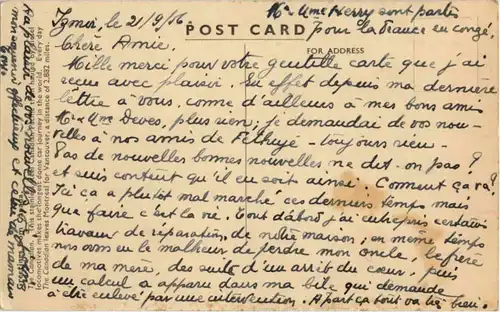 Mr & Mme Herry sont partis
pour la France en congé.
Izmir, le 21/9/56.
POST CARD
FOR ADDRESS
Chère Amie.
Mille merci pour votre gentille carte que j'ai
reçue avec plaisir. En effet depuis ma dernière
lettre à vous, comme d'ailleurs à mes bons amis
Mr & Mme Deves, plus rien; je demandai de vos nou-
velles à nos amis de Fethiyé - toujours rien -
Pas de nouvelles bonnes nouvelles ne dit-on pas?
et suis content qu'il en soit ainsi. Coment ça va?
Ici ça a plutôt mal marché ces derniers temps mais
que faire c'est la vie. Tout d'abord j'ai entrepris certains
travaux de réparation, de notre maison; en même temps
nous avons eu le malheur de perdre mon oncle, le frère
de ma mère, des suite d'un arrêt du cœur, puis
un calcul a apparu dans ma bile qui demande
à être enlevé par une intervention. A part ça tout va très bien.
locomotives makes the longest dome car journey in the world. Every day
The Canadian leaves Montreal for Vancouver, a distance of 2,882 miles.